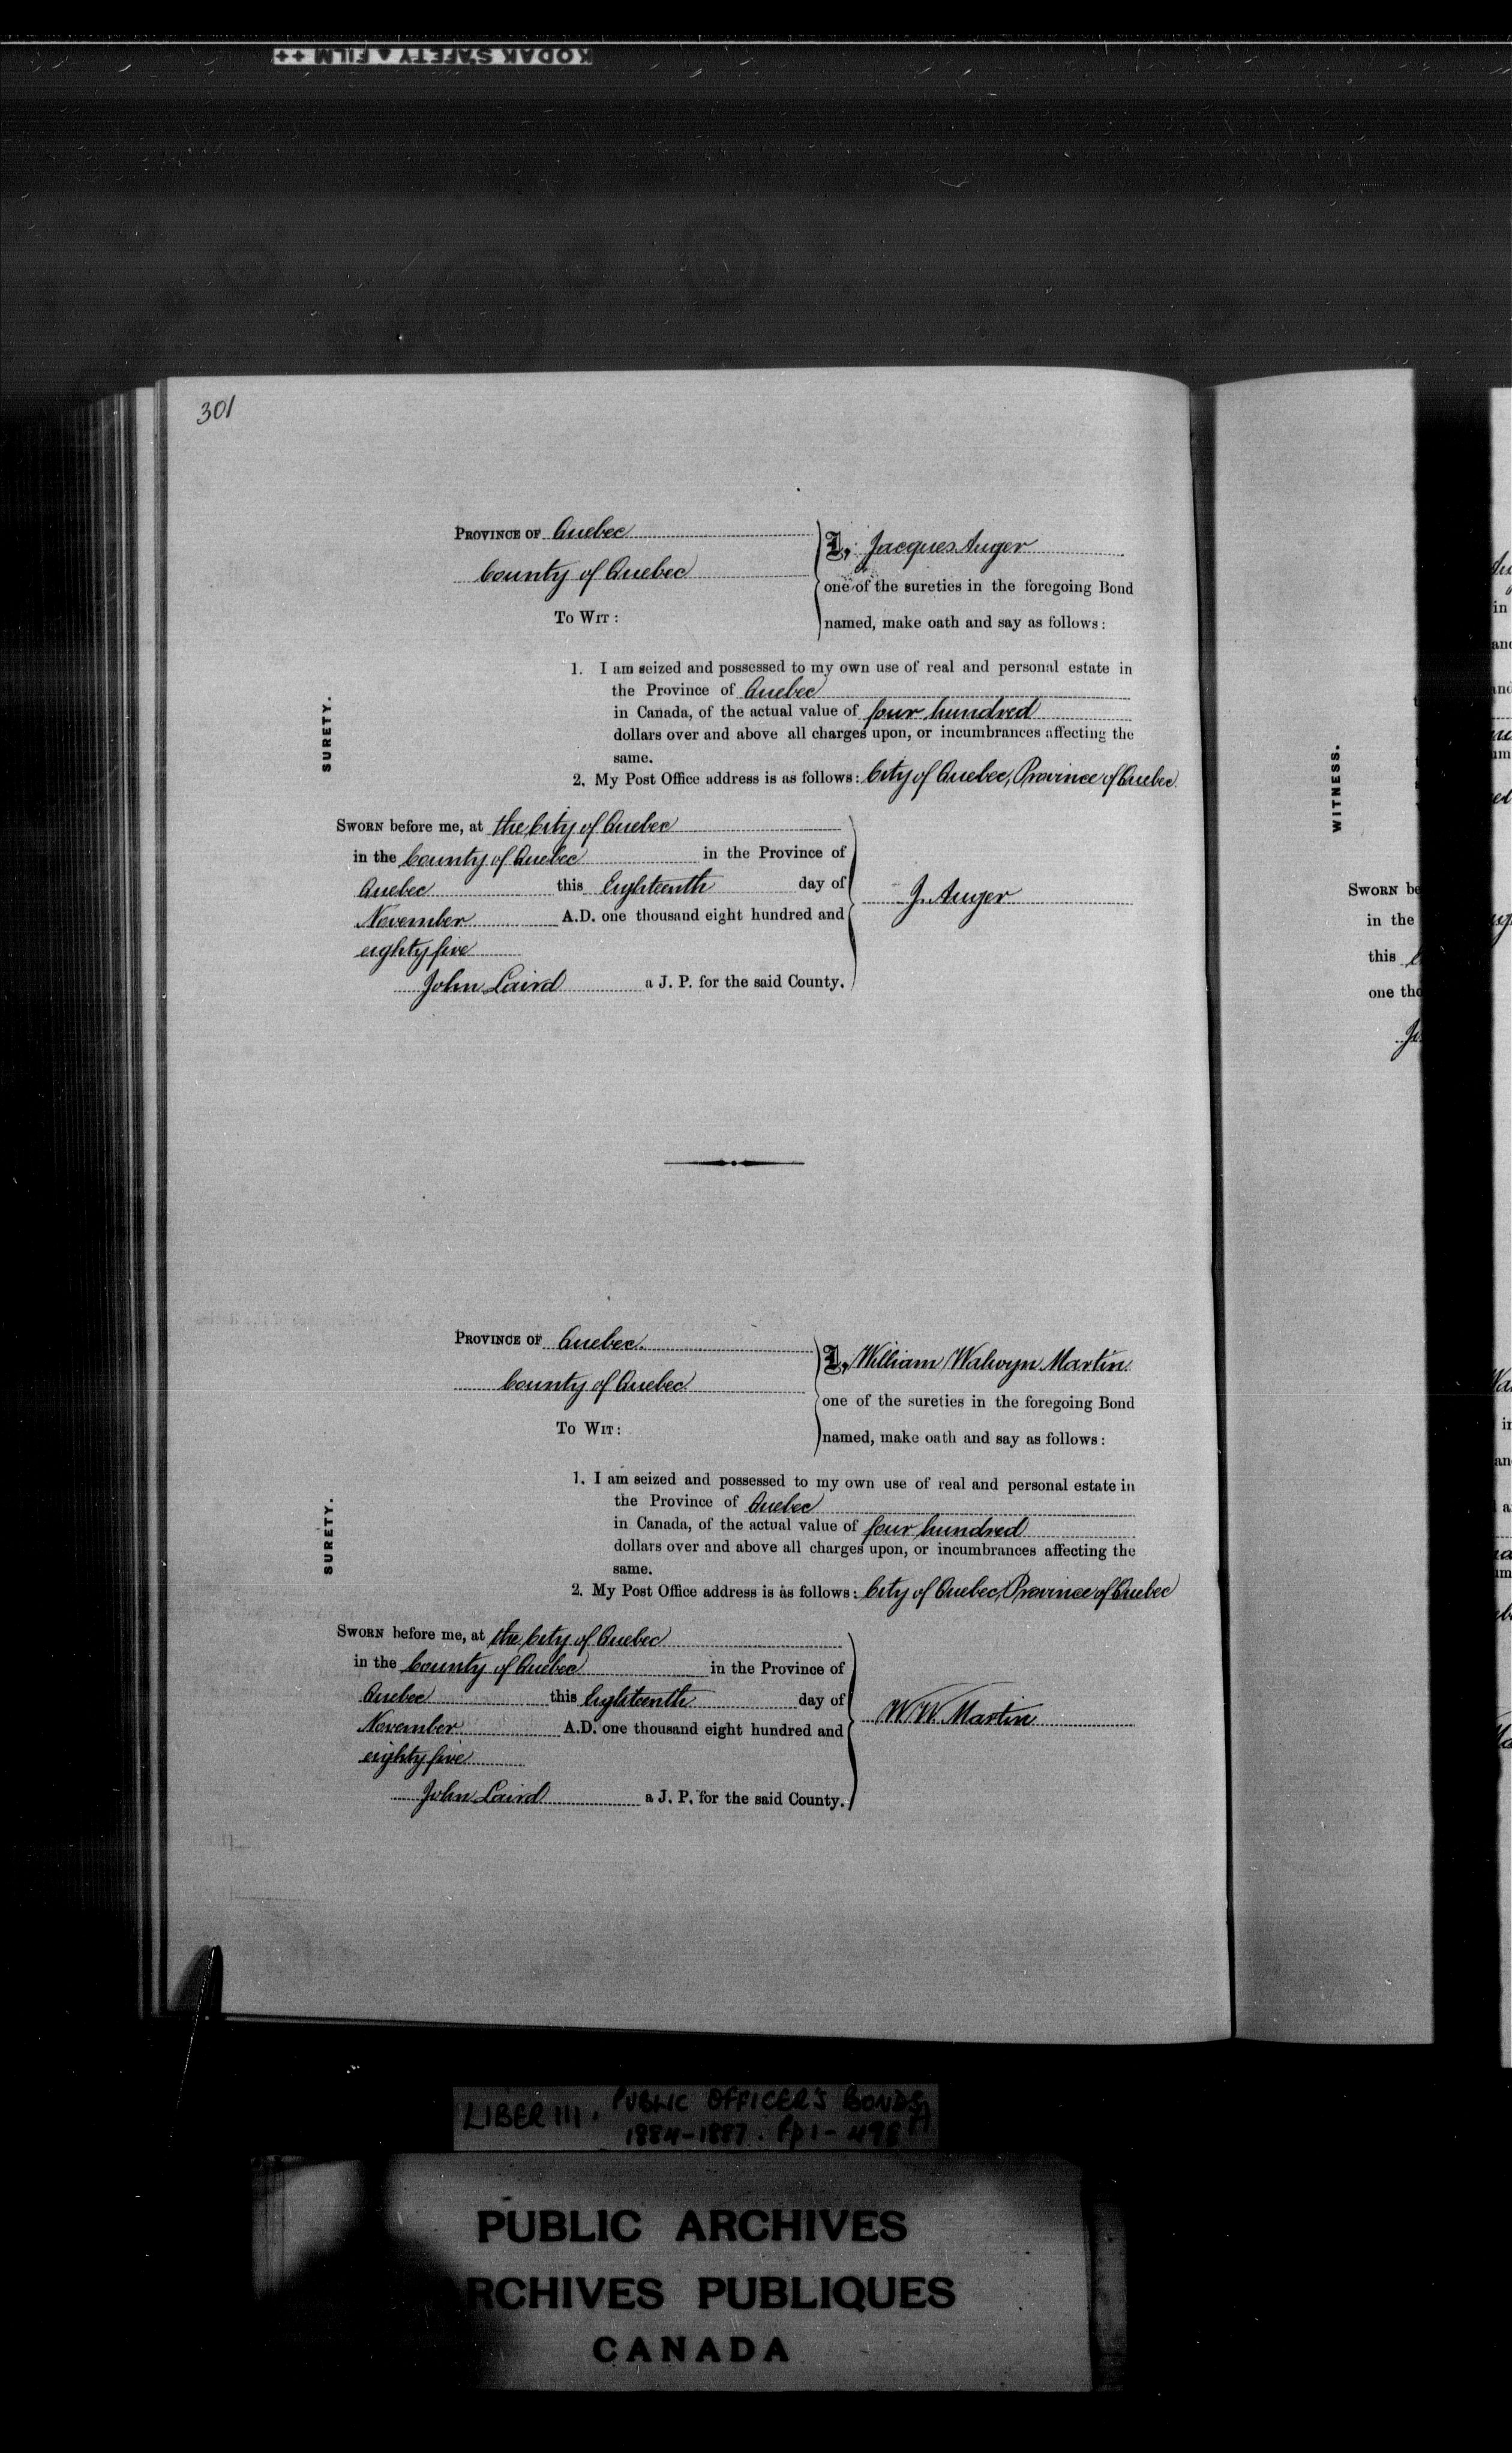 KODAK SAFETY FILM ++
301
PROVINCE OF Quebec
County of Quebec
TO WIT:
I, Jacques Auger
one of the sureties in the foregoing Bond
named, make oath and say as follows:
SURETY.
1. I am seized and possessed to my own use of real and personal estate in
the Province of Quebec
in Canada, of the actual value of four hundred
dollars over and above all charges upon, or incumbrances affecting the
same.
2. My Post Office address is as follows: City of Quebec, Province of Quebec
SWORN before me, at the City of Quebec
in the County of Quebec in the Province of
Quebec this Eighteenth day of
November A.D. one thousand eight hundred and
eighty five
John Laird a J. P. for the said County.
J. Auger
PROVINCE OF Quebec.
County of Quebec
TO WIT:
I, William Walwyn Martin
one of the sureties in the foregoing Bond
named, make oath and say as follows:
SURETY.
1. I am seized and possessed to my own use of real and personal estate in
the Province of Quebec
in Canada, of the actual value of four hundred
dollars over and above all charges upon, or incumbrances affecting the
same.
2. My Post Office address is as follows: City of Quebec, Province of Quebec
SWORN before me, at the City of Quebec
in the County of Quebec in the Province of
Quebec this Eighteenth day of
November A.D. one thousand eight hundred and
eighty five
John Laird a J. P. for the said County.
W. W. Martin
WITNESS.
SWORN be
in the
this
one tho
LIBER III. PUBLIC OFFICER'S BONDS
1884-1887. Pp 1-498
PUBLIC ARCHIVES
RCHIVES PUBLIQUES
CANADA